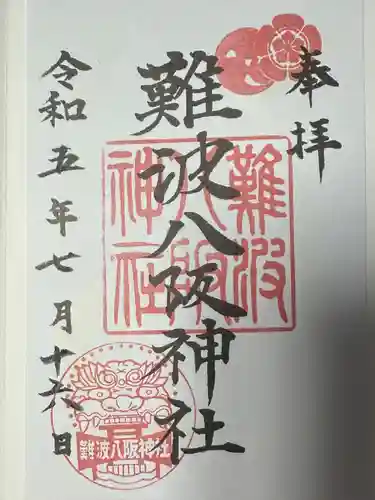 奉拝
難波八阪神社
令和五年七月十六日
難波
八阪
神社
難波八阪神社